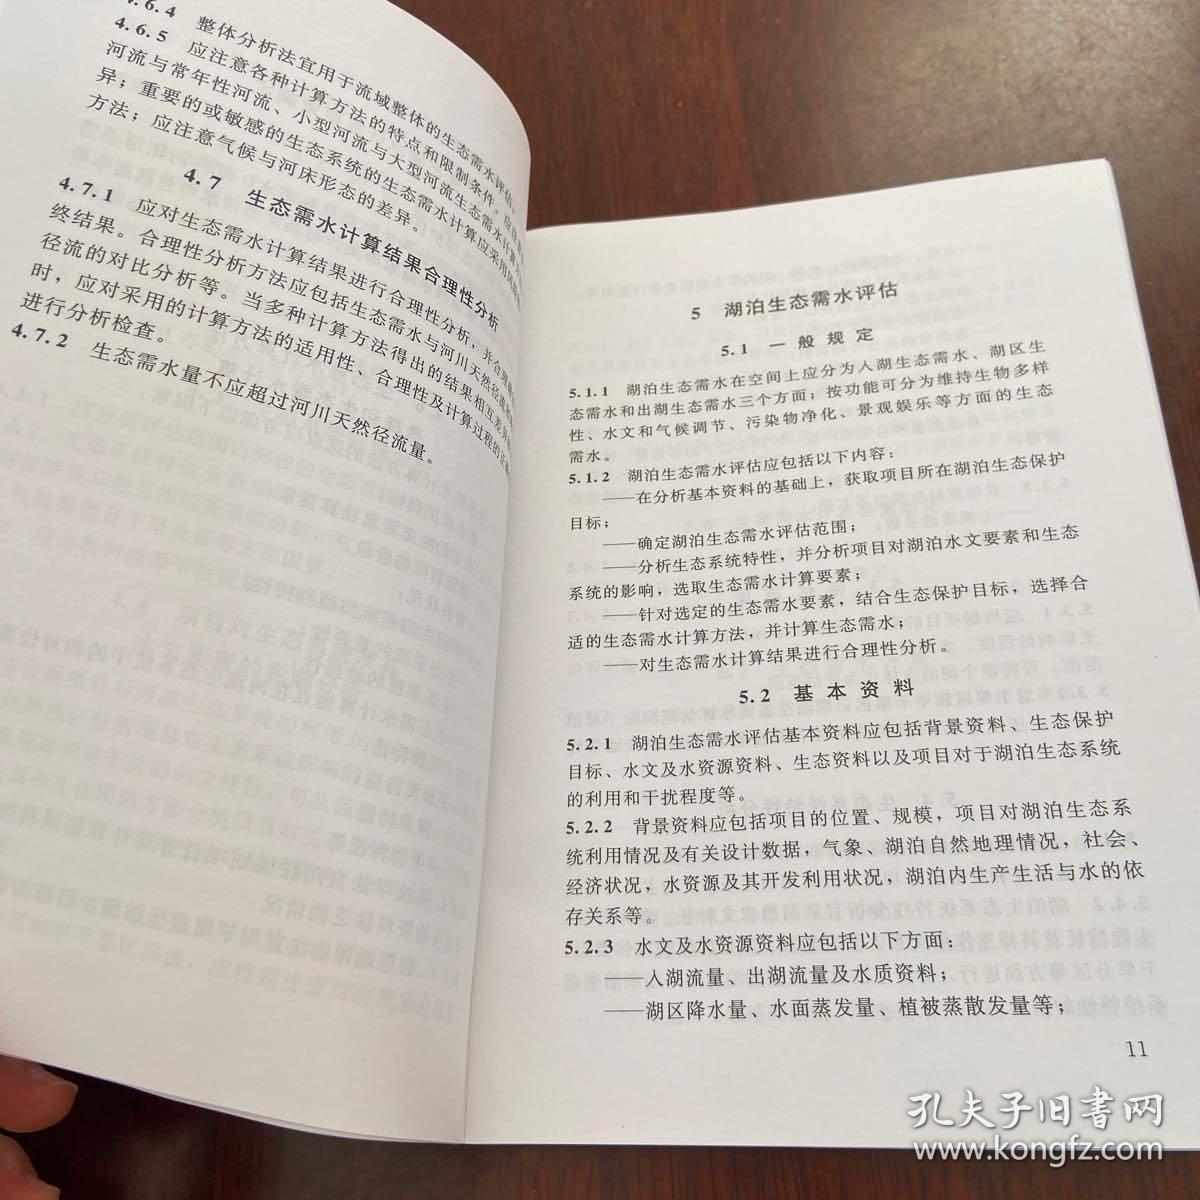 4.6.4 整体分析法宜用于流域整体的生态需水评估
4.6.5 应注意各种计算方法的特点和限制条件。
河流与常年性河流、小型河流与大型河流生态需水计算
异；重要的或敏感的生态系统的生态需水计算应采用
方法；应注意气候与河床形态的差异。
4.7 生态需水计算结果合理性分析
4.7.1 应对生态需水计算结果进行合理性分析，并
终结果。合理性分析方法应包括生态需水与河川天然径流
径流的对比分析等。当多种计算方法得出的结果相互差异
时，应对采用的计算方法的适用性、合理性及计算过程的正确
进行分析检查。
4.7.2 生态需水量不应超过河川天然径流量。
5 湖泊生态需水评估
5.1 一般规定
5.1.1 湖泊生态需水在空间上应分为入湖生态需水、湖区生
态需水和出湖生态需水三个方面；按功能可分为维持生物多样
性、水文和气候调节、污染物净化、景观娱乐等方面的生态
需水。
5.1.2 湖泊生态需水评估应包括以下内容：
——在分析基本资料的基础上，获取项目所在湖泊生态保护
目标；
——确定湖泊生态需水评估范围；
——分析生态系统特性，并分析项目对湖泊水文要素和生态
系统的影响，选取生态需水计算要素；
——针对选定的生态需水要素，结合生态保护目标，选择合
适的生态需水计算方法，并计算生态需水；
——对生态需水计算结果进行合理性分析。
5.2 基本资料
5.2.1 湖泊生态需水评估基本资料应包括背景资料、生态保护
目标、水文及水资源资料、生态资料以及项目对于湖泊生态系统
的利用和干扰程度等。
5.2.2 背景资料应包括项目的位置、规模，项目对湖泊生态系
统利用情况及有关设计数据，气象、湖泊自然地理情况，社会、
经济状况，水资源及其开发利用状况，湖泊内生产生活与水的依
存关系等。
5.2.3 水文及水资源资料应包括以下方面：
——入湖流量、出湖流量及水质资料；
——湖区降水量、水面蒸发量、植被蒸散发量等；
11
孔夫子旧书网
www.kongfz.com